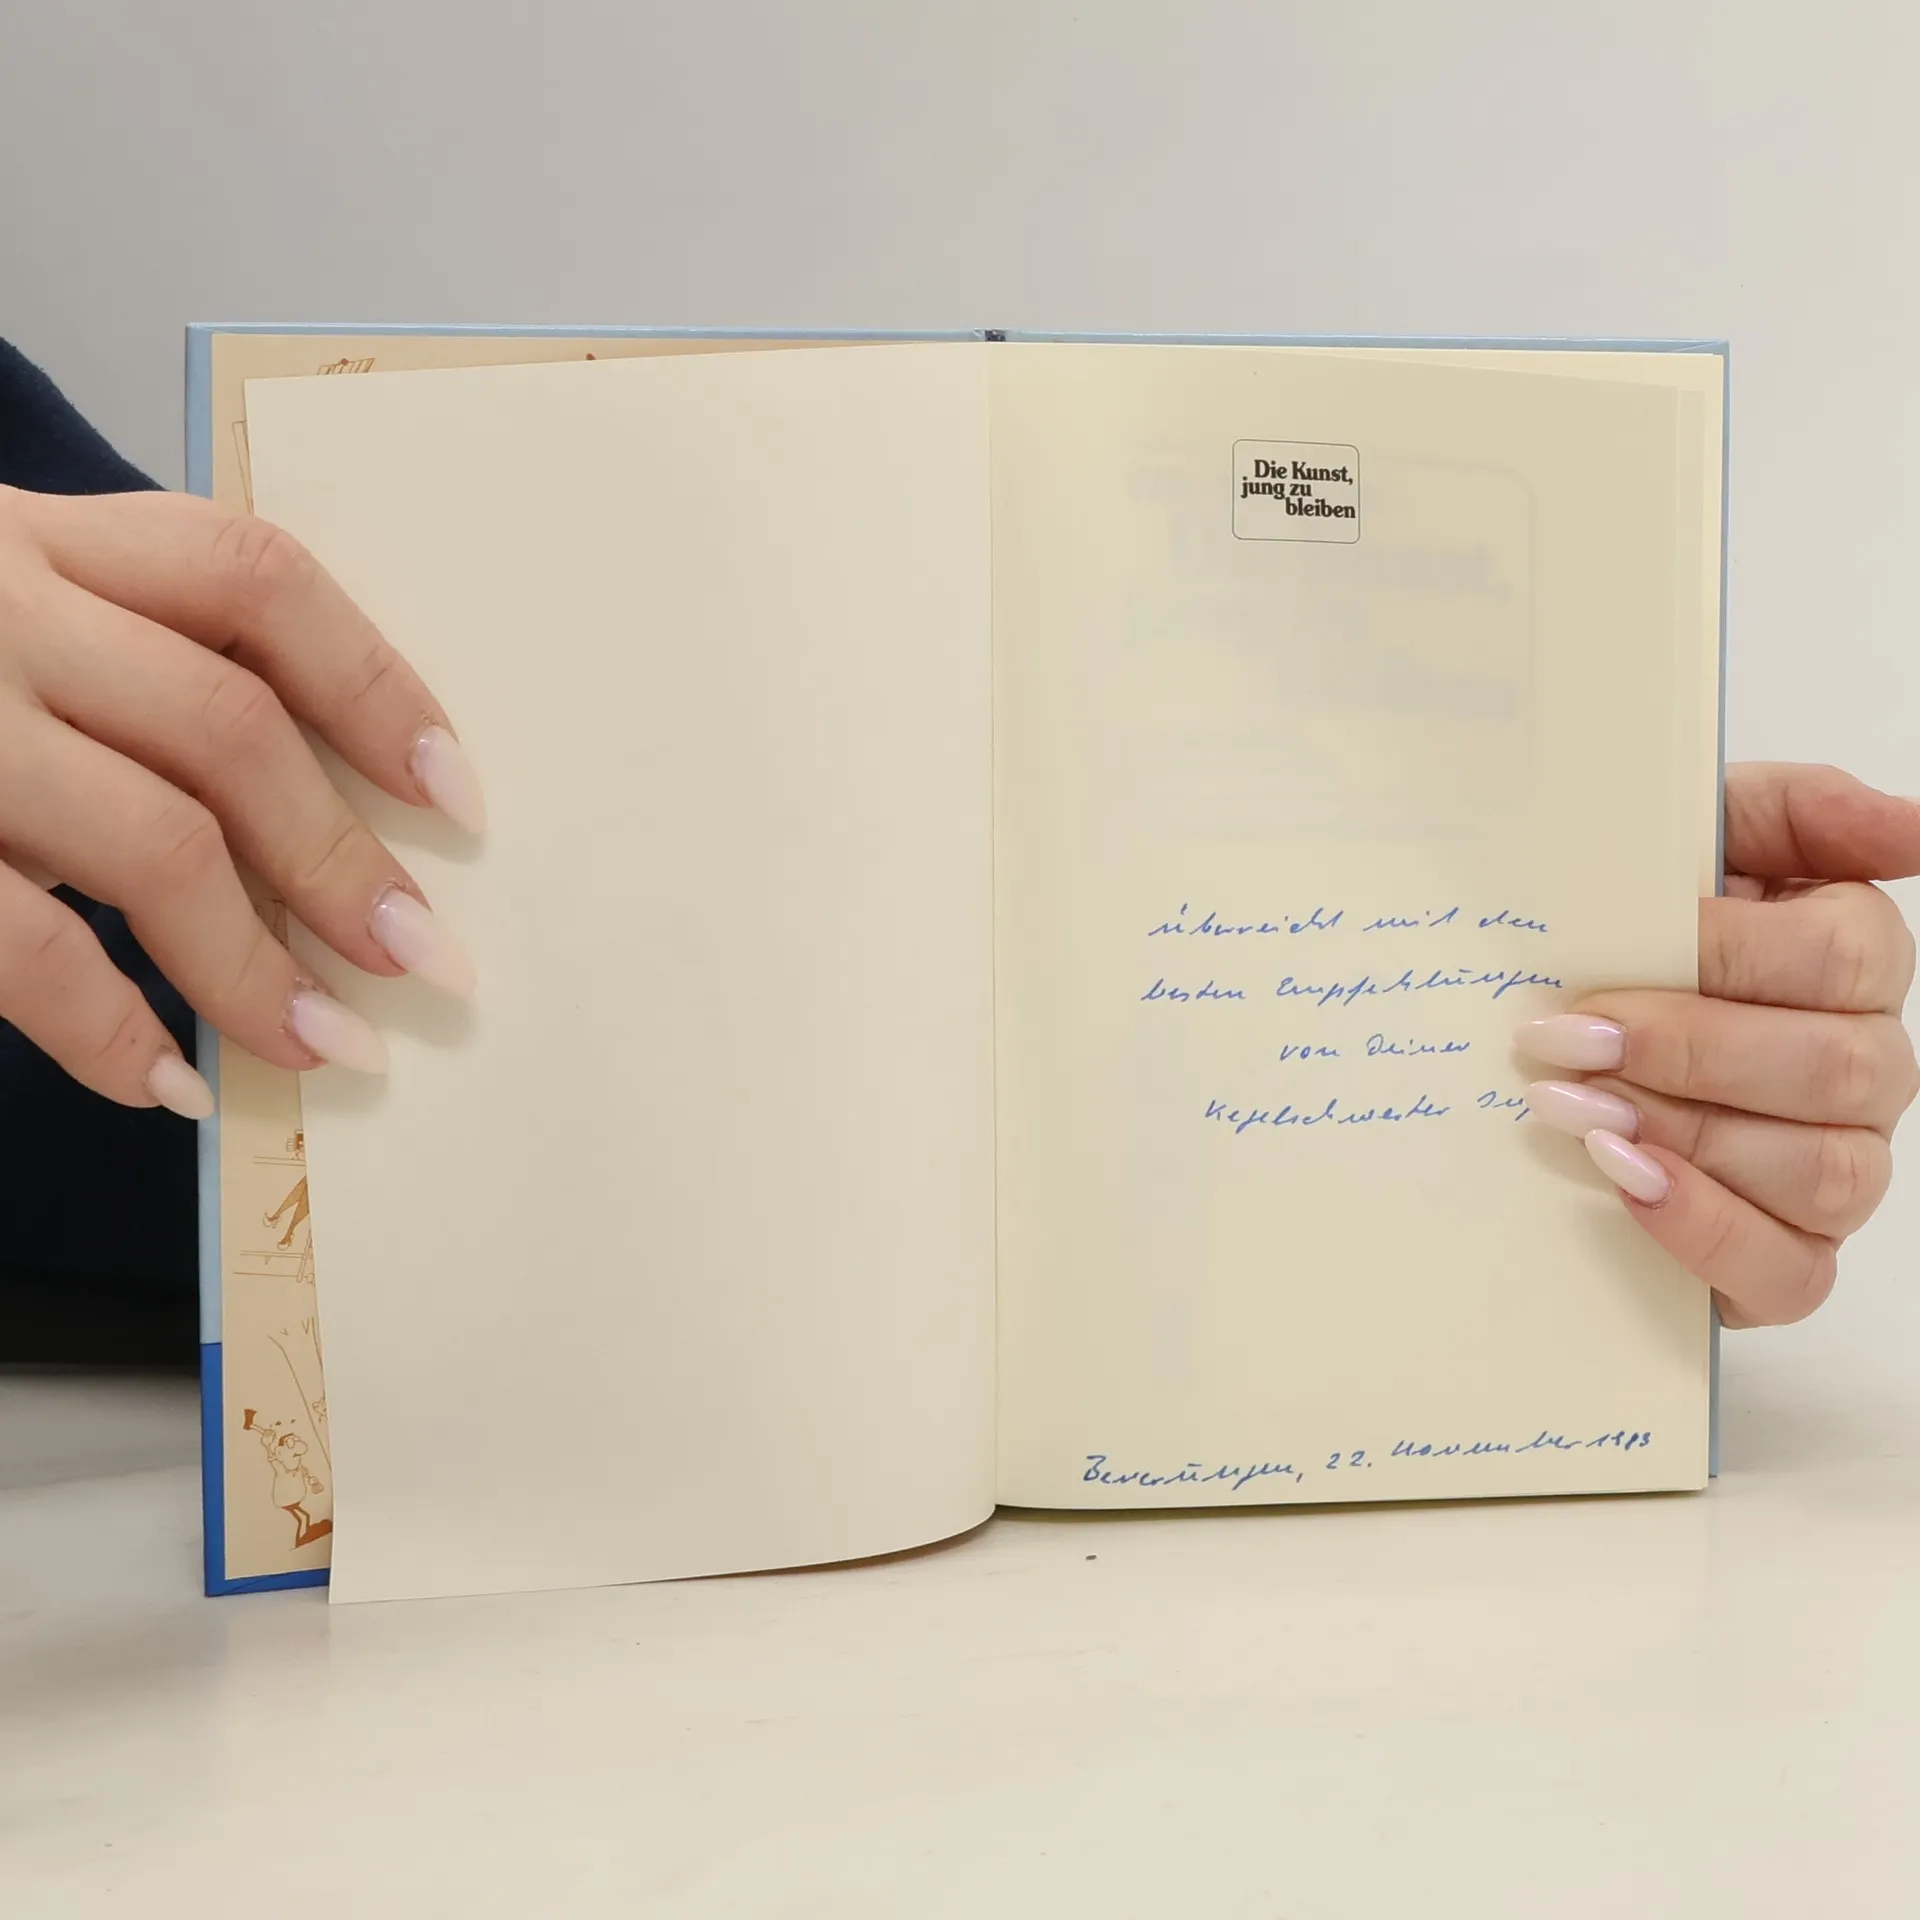 Die Kunst,
jung zu
bleiben
überreicht mit den
besten Empfehlungen
von Deiner
Kegelschwester
Beverungen, 22. November 1983